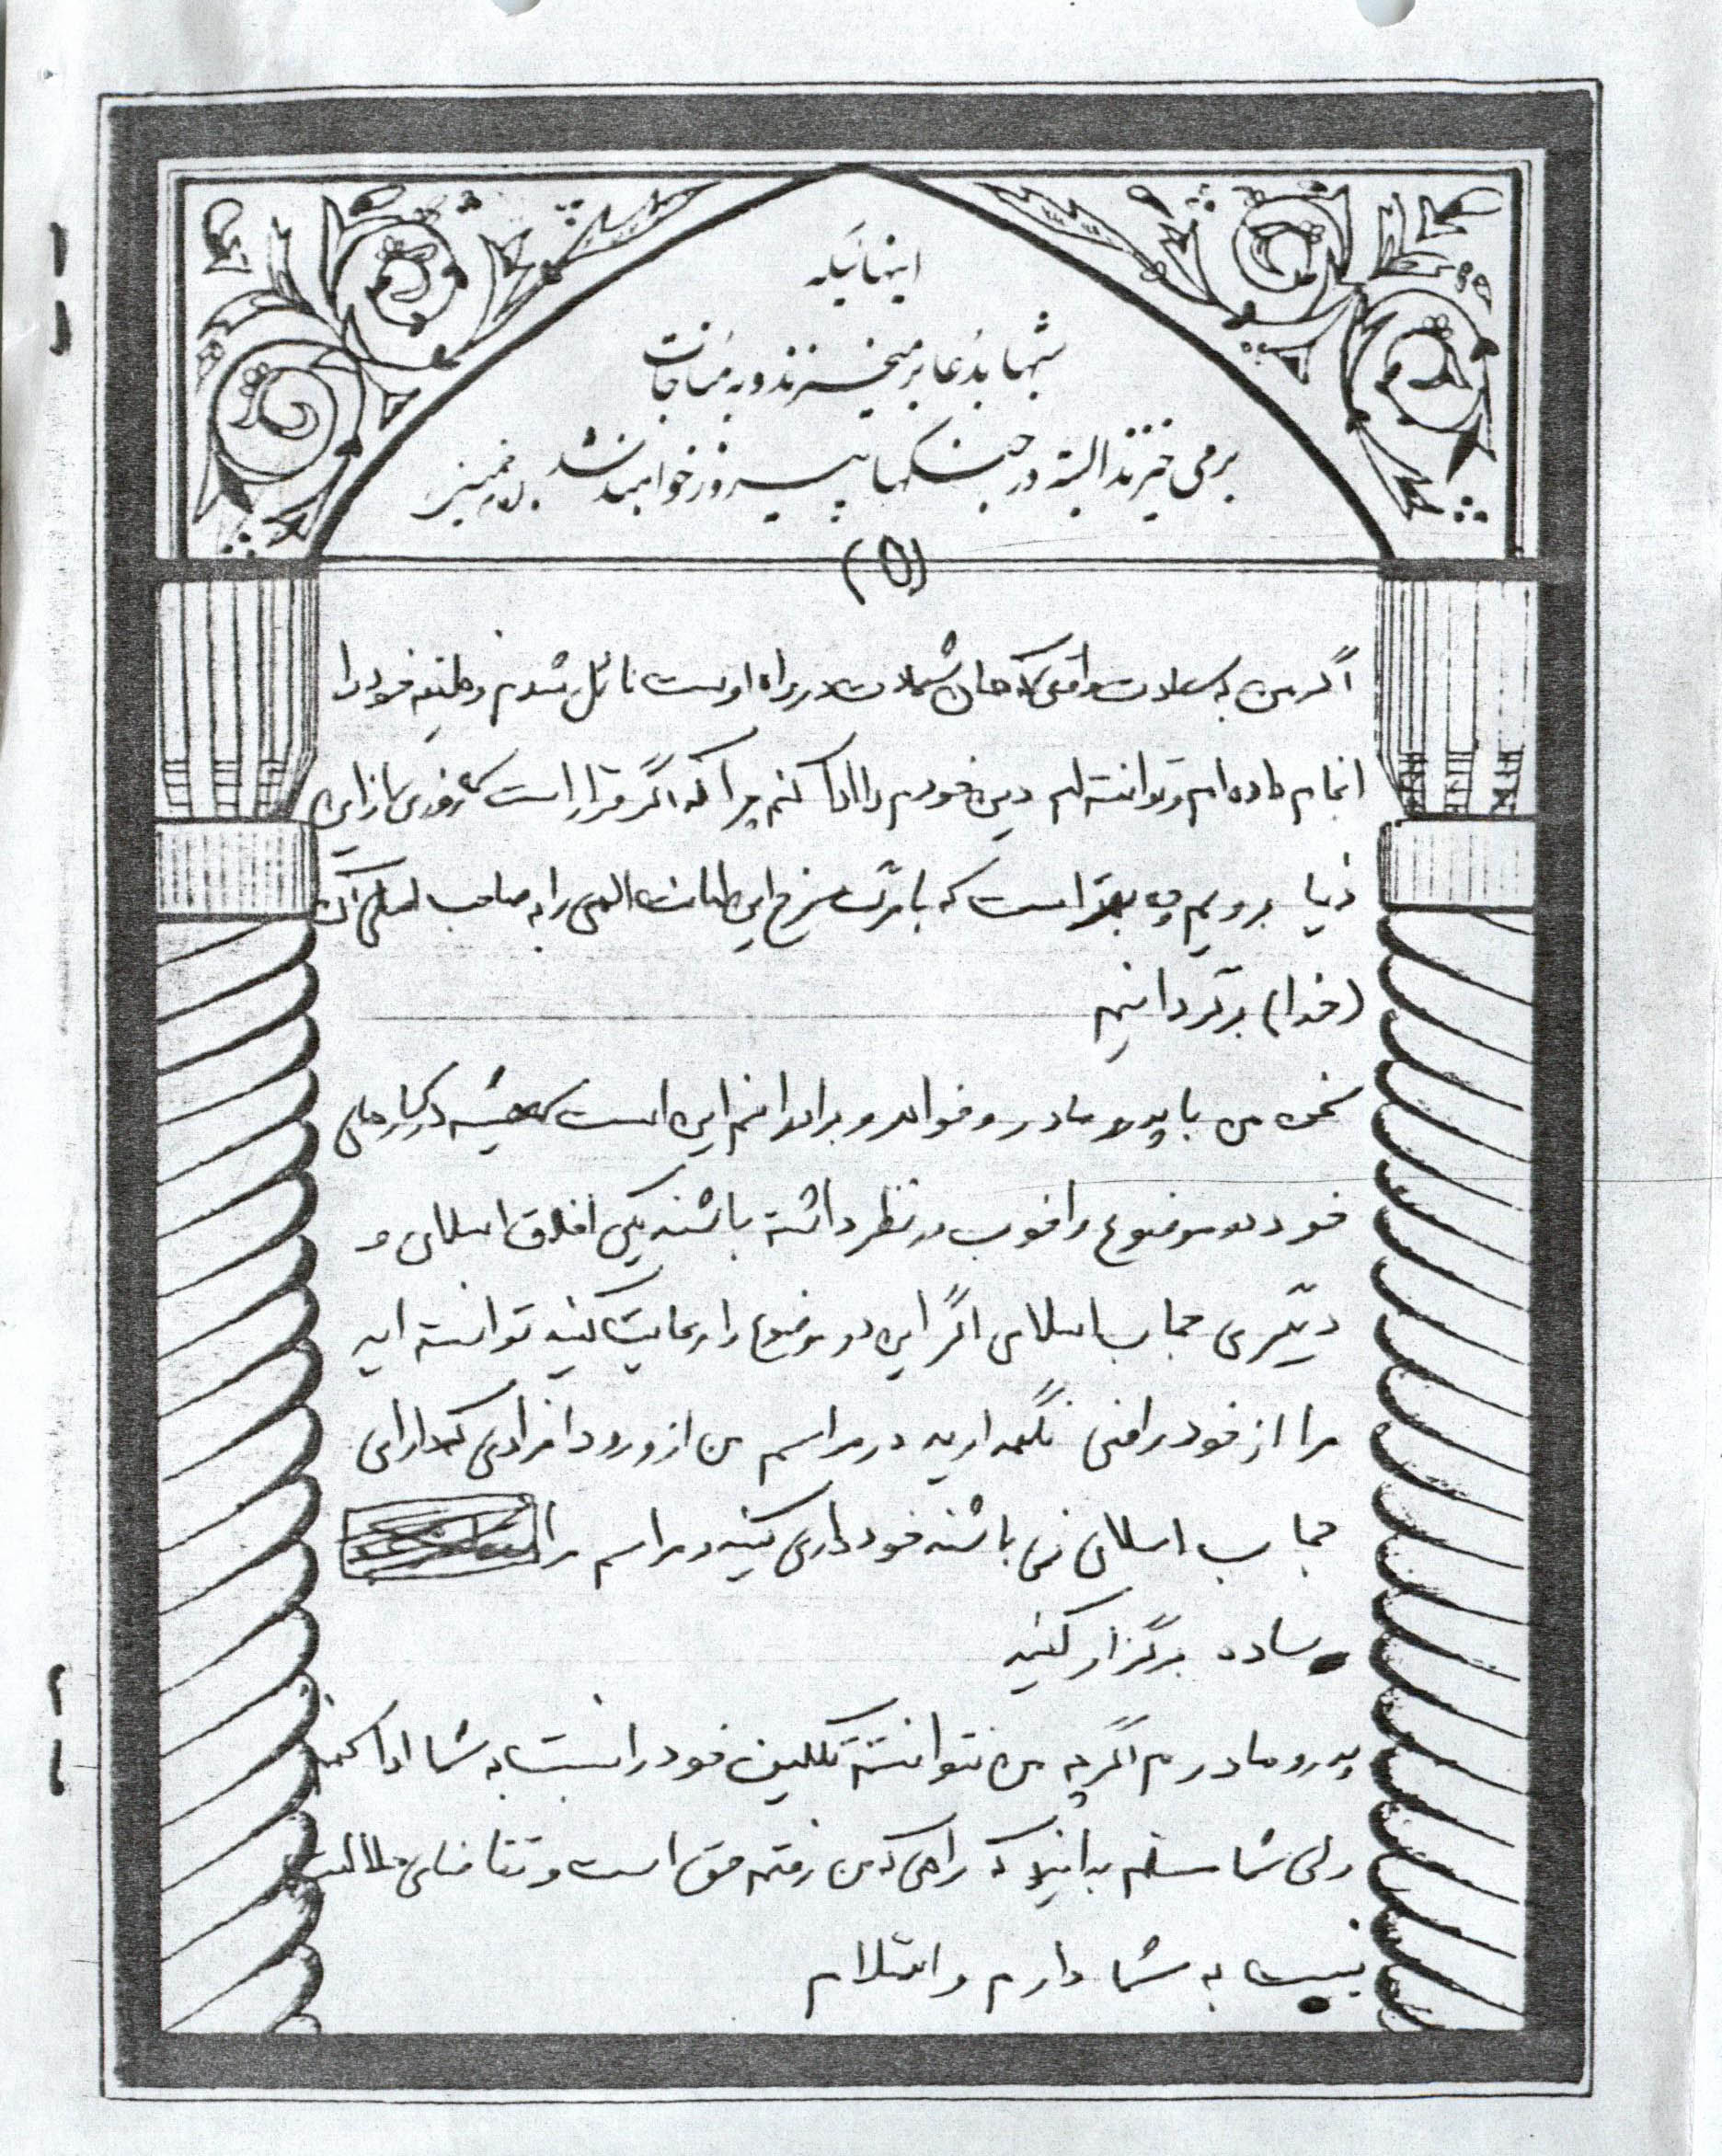 اینهائیکه
شبها بدعا برمیخیزند و به مناجات
برمی خیزند البته در جنگها پیروز خواهند شد.
(۵)
اگر من به سعادت واقعی که همان شهادت در راه اوست نائل شدم وظیفه خود را
انجام داده ام و توانسته ام دین خودم را ادا کنم چرا که اگر قرار است که روزی ما از این
دنیا برویم چه بهتر است که با مرگ سرخ این امانت الهی را به صاحب اصلی آن
(خدا) برگردانیم
سخن من با پدر و مادر و خواهر و برادرانم این است که همیشه در کارهای
خود دو موضوع را خوب در نظر داشته باشند یکی اخلاق اسلامی و
دیگری حجاب اسلامی اگر این دو موضوع را رعایت کنید توانسته اید
مرا از خود راضی نگهدارید در مراسم من از ورود افرادی که دارای
حجاب اسلامی نمی باشند خودداری کنید و مراسم مرا
ساده برگزار کنید
پدر و مادرم اگر چه من نتوانستم تکلیف خود را نسبت به شما ادا کنم
ولی شما مسلم بدانید که راهی که من رفتم حق است و تقاضای حلالیت
نسبت به شما دارم والسلام